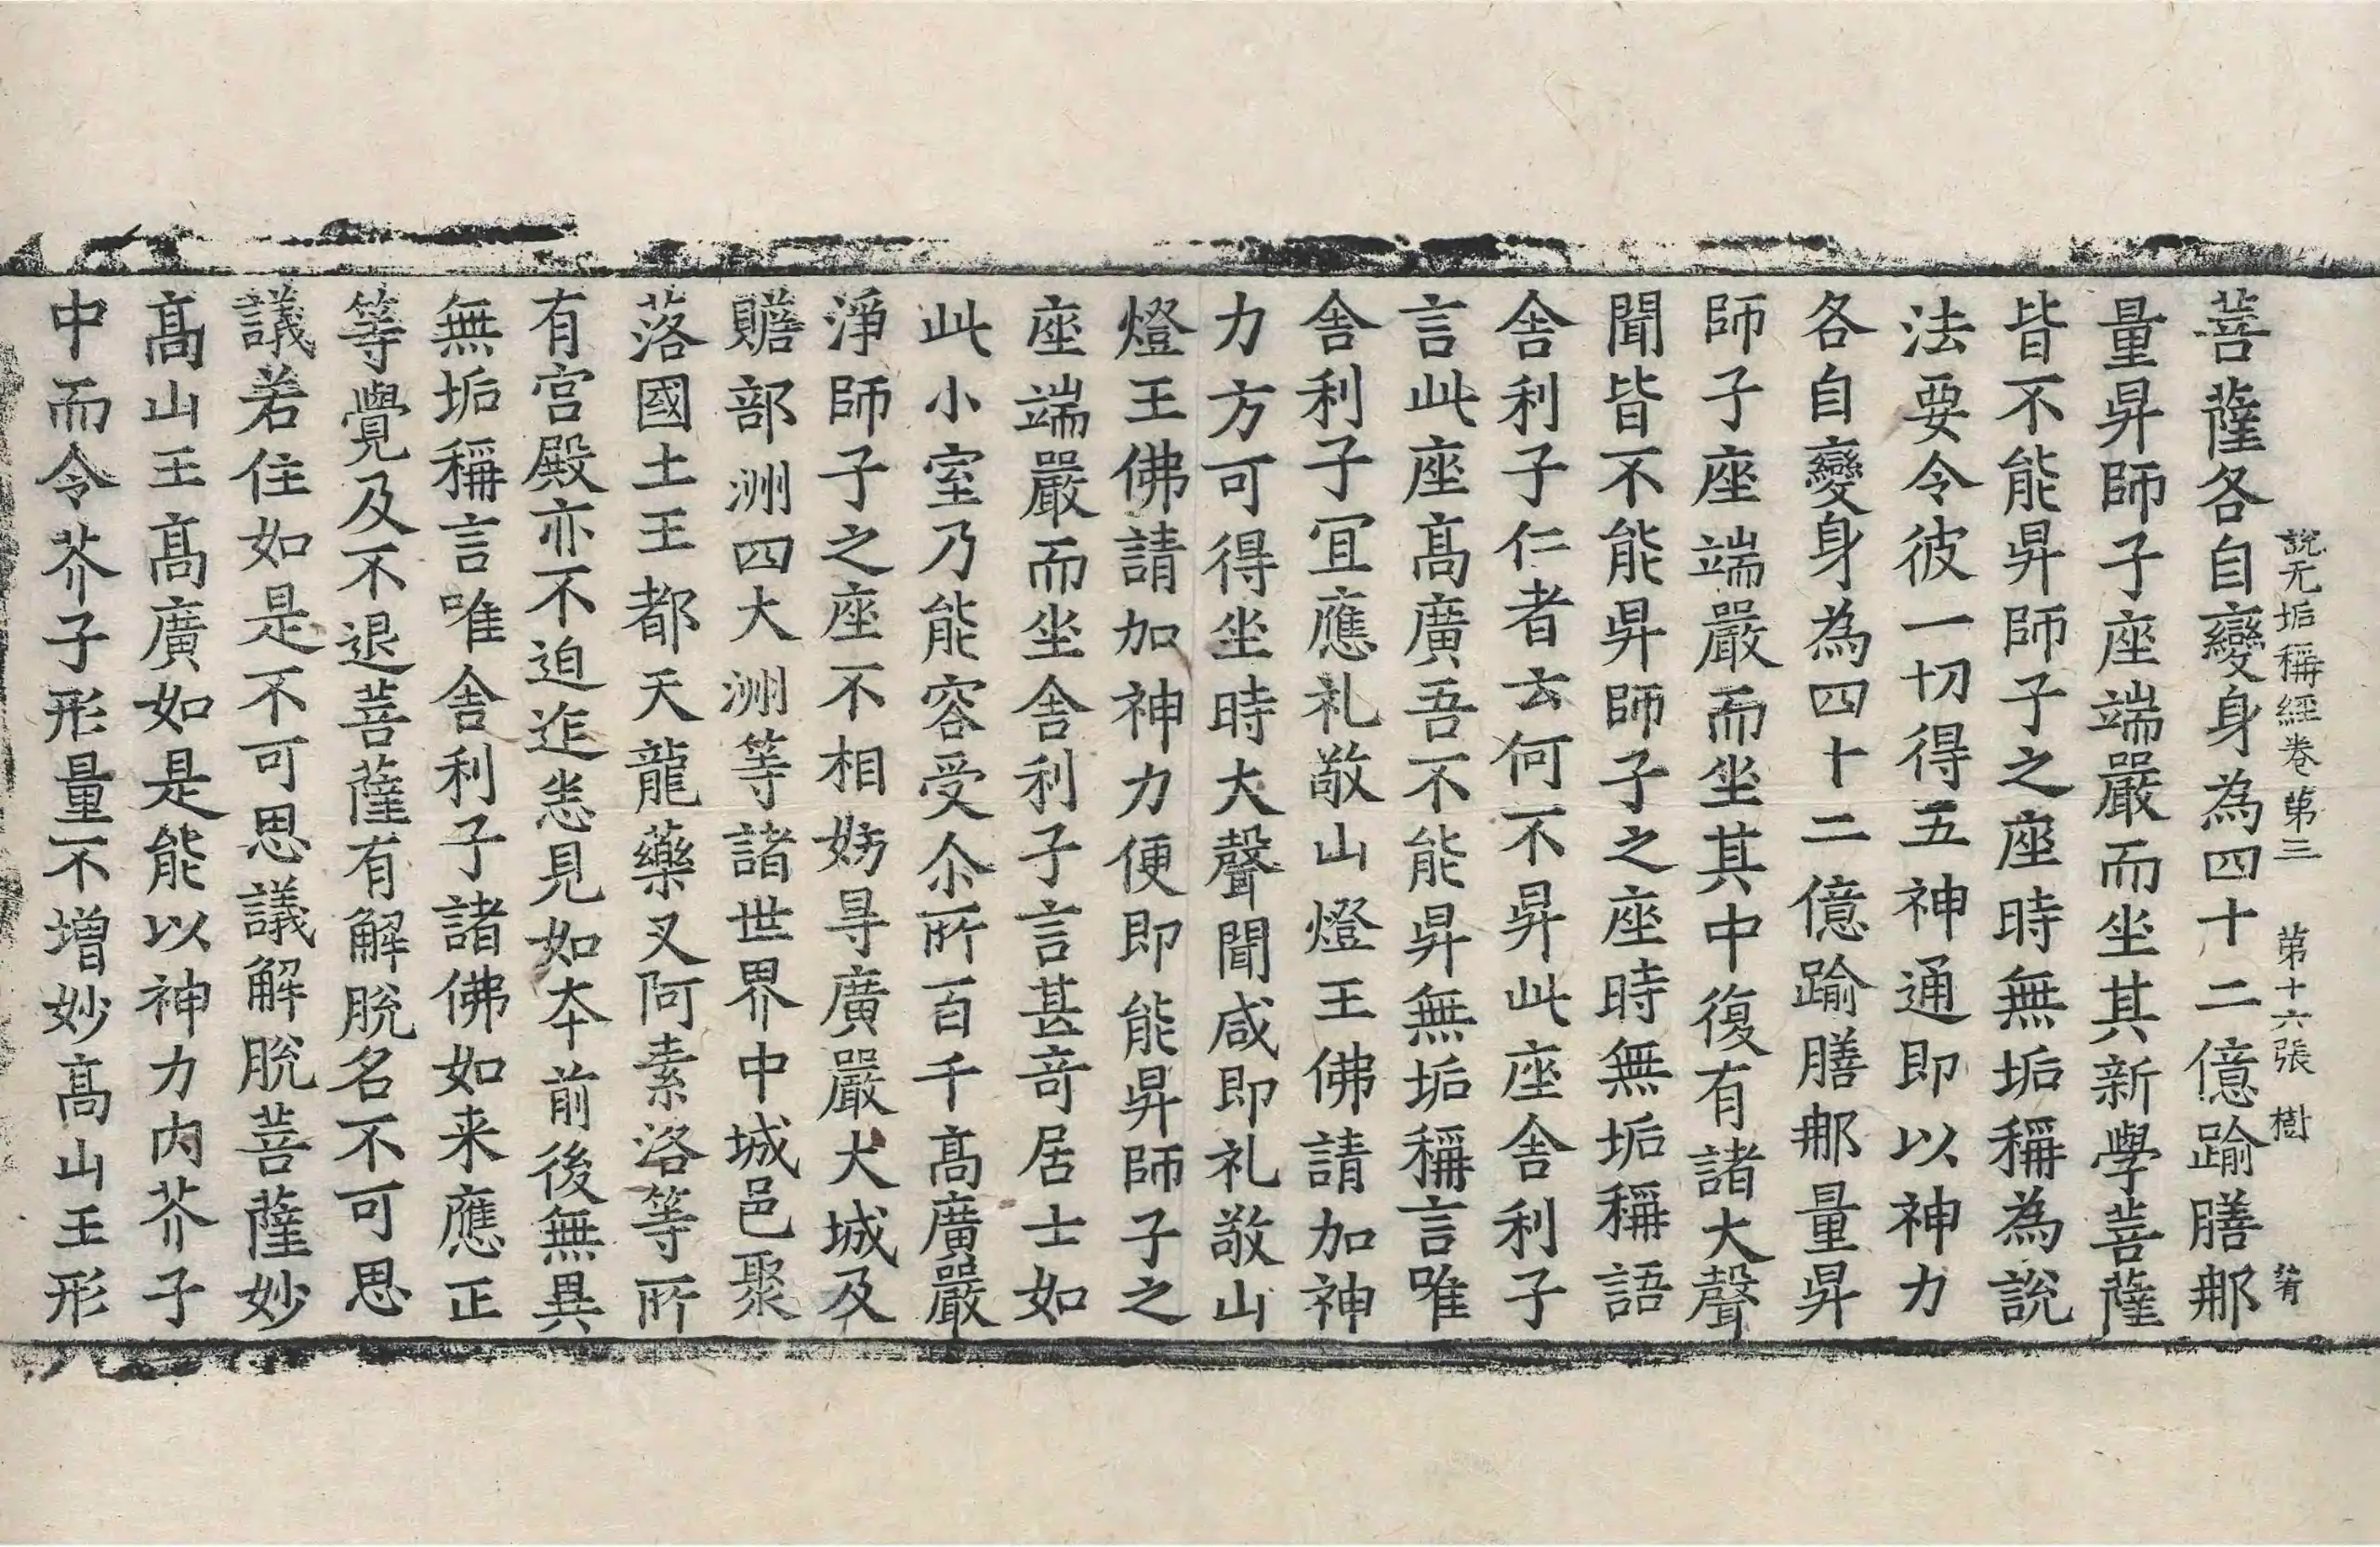 說无垢稱經卷第三 第十六張 樹
菩薩各自變身為四十二億踰膳那
量昇師子座端嚴而坐其新學菩薩
皆不能昇師子之座時無垢稱為說
法要令彼一切得五神通即以神力
各自變身為四十二億踰膳那量昇
師子座端嚴而坐其中復有諸大聲
聞皆不能昇師子之座時無垢稱語
舍利子仁者云何不昇此座舍利子
言此座髙廣吾不能昇無垢稱言唯
舍利子冝應礼敬山燈王佛請加神
力方可得坐時大聲聞咸即礼敬山
燈王佛請加神力便即能昇師子之
座端嚴而坐舍利子言甚竒居士如
此小室乃能容受尒所百千髙廣嚴
淨師子之座不相妨㝵廣嚴大城及
贍部洲四大洲等諸世界中城邑聚
落國土王都天龍藥叉阿素洛等所
有宮殿亦不迫迮悉見如夲前後無異
無垢稱言唯舍利子諸佛如来應正
等覺及不退菩薩有解脫名不可思
議若住如是不可思議解脫菩薩妙
髙山王髙廣如是能以神力内芥子
中而令芥子形量不增妙髙山王形